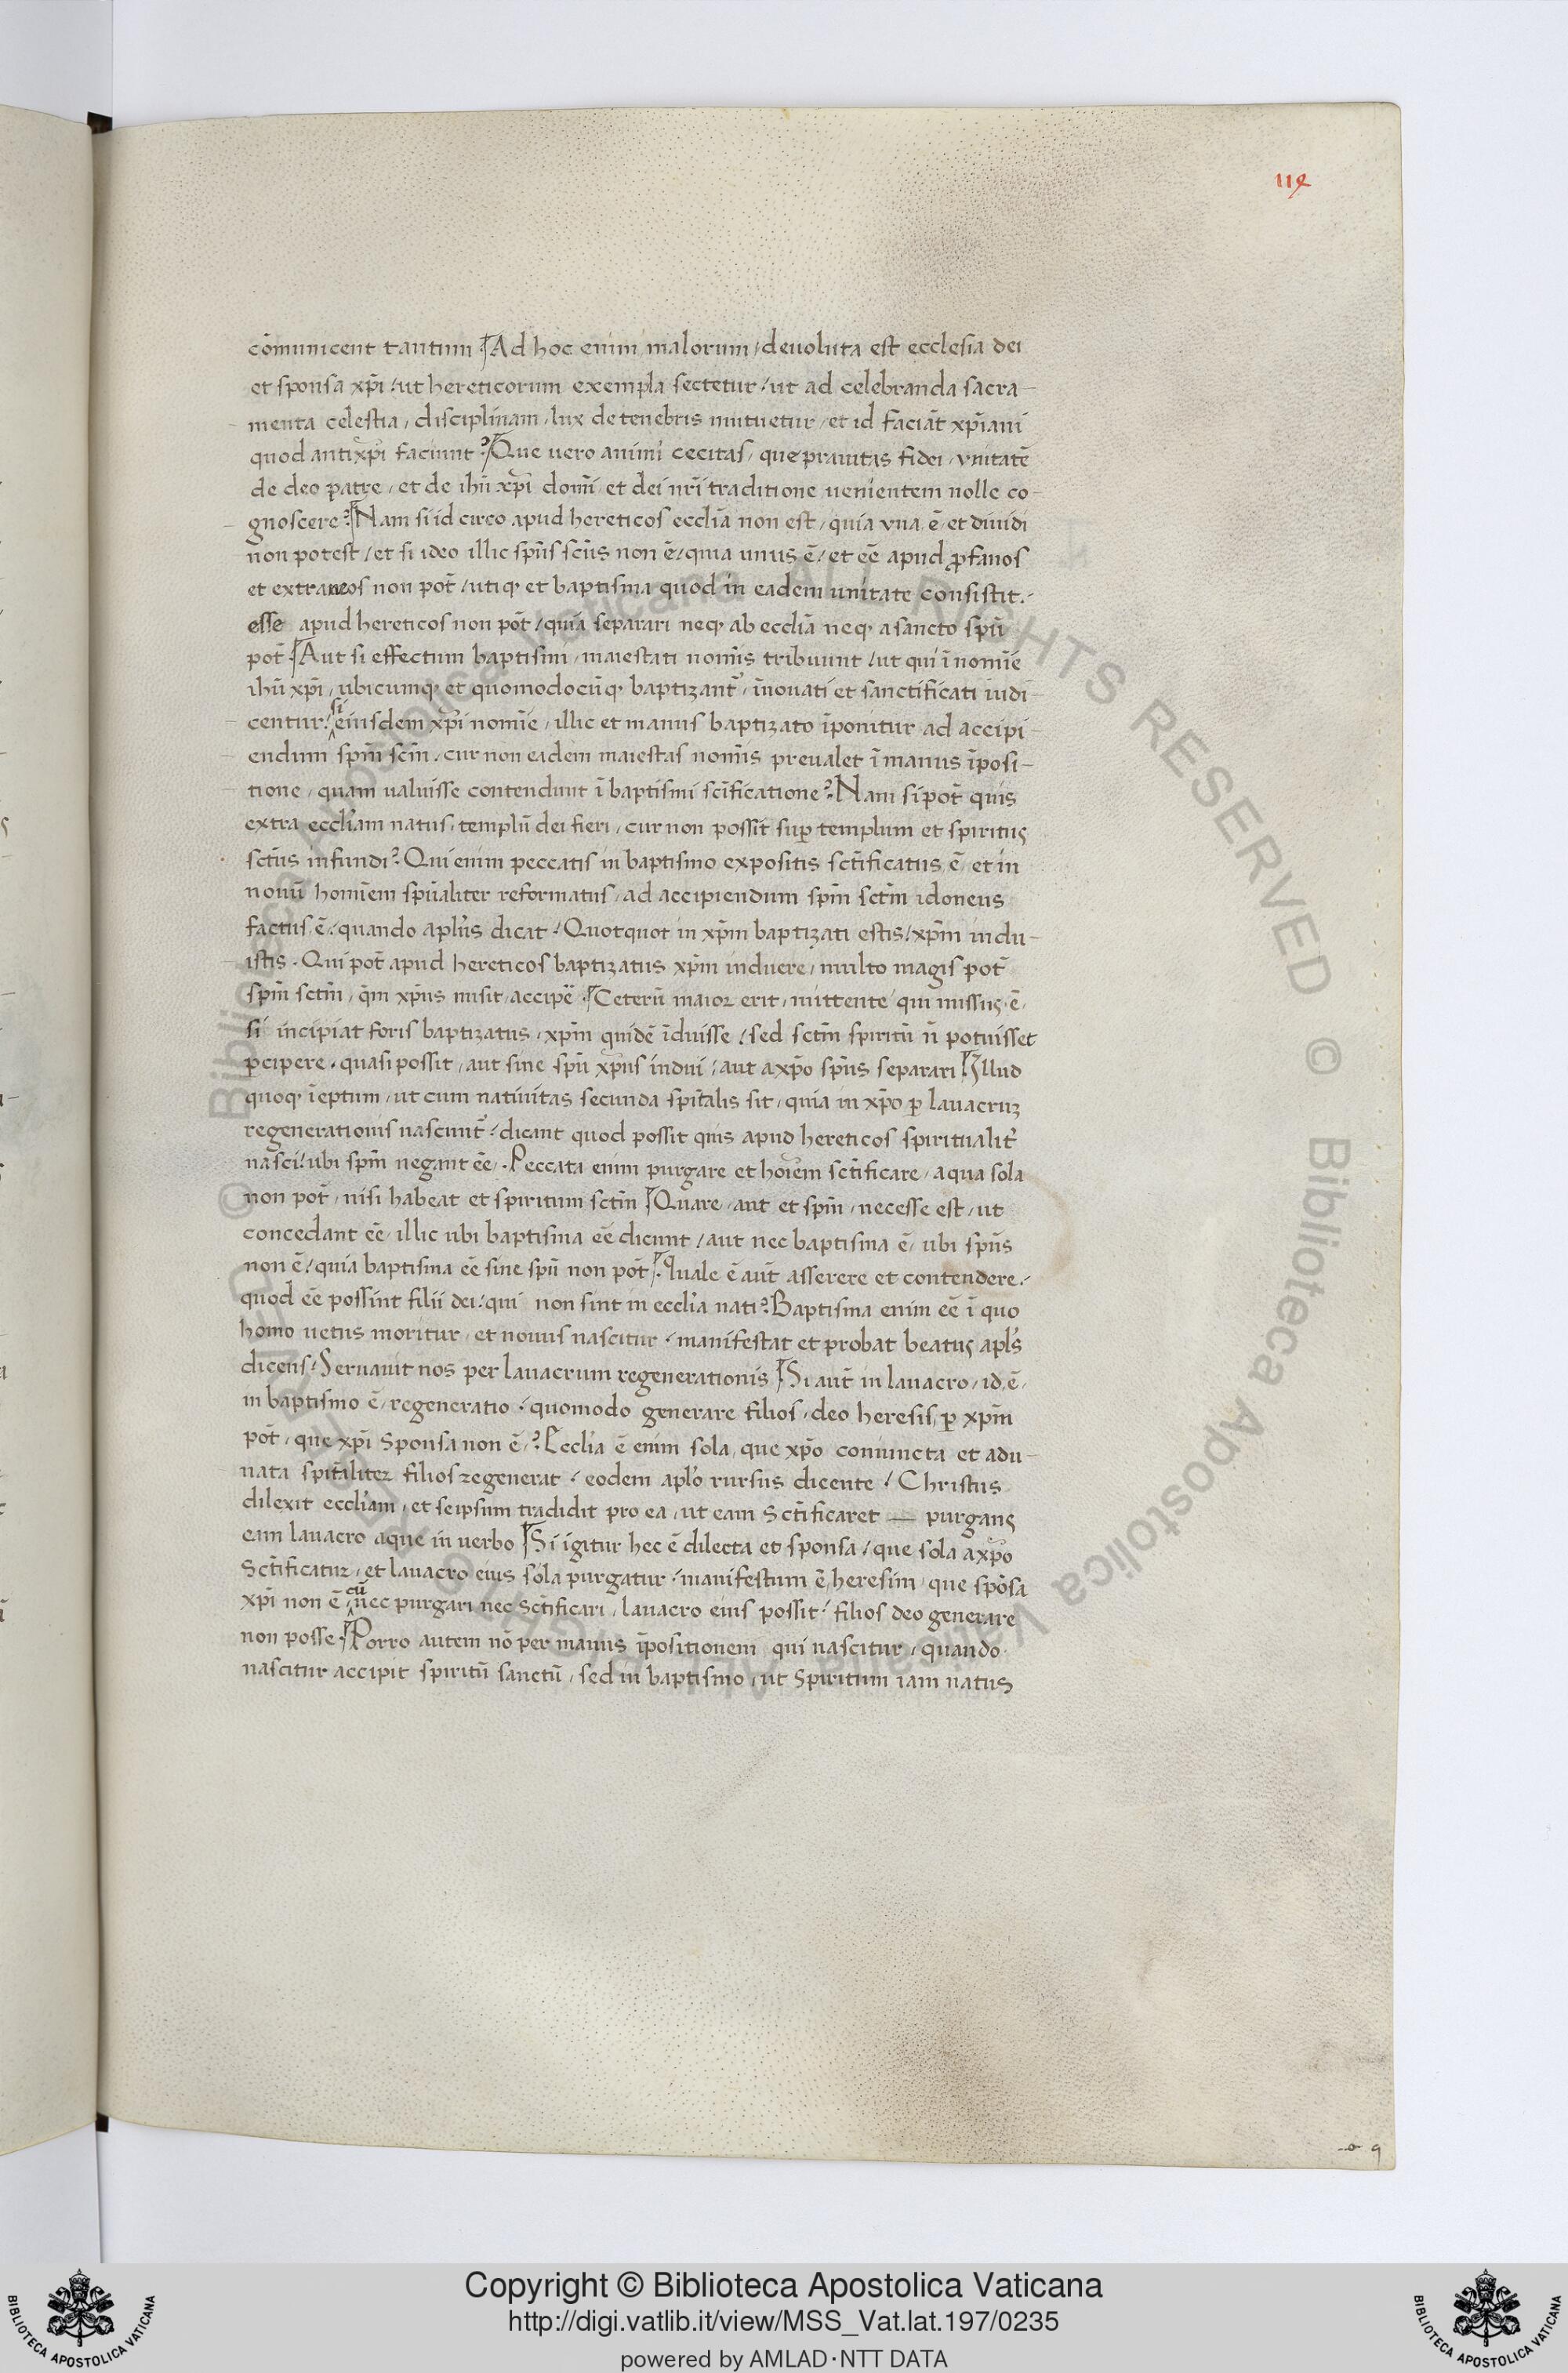 114
cōmunicent tantum. Ad hoc enim malorum / deuoluta est ecclesia dei
et sponsa xp̄i / ut hereticorum exempla sectetur / ut ad celebranda sacra-
menta celestia / disciplinam / lux de tenebris mutuetur / et id faciāt xp̄iani
quod antixp̄i faciunt? Que uero animi cecitas / que prauitas fidei / vnitatē
de deo patre / et de ihū xp̄i domī et dei nr̄i traditione uenientem nolle co-
gnoscere? Nam si id circo apud hereticos ecclīa non est / quia vna ē / et diuidi
non potest / et si ideo illic spūs scūs non ē / quia unus ē / et eē apud ꝓfanos
et extraneos non pot̄ / utiqꝫ et baptisma quod in eadem unitate consistit /
esse apud hereticos non pot̄ / quia separari neqꝫ ab ecclīa neqꝫ a sancto spū
pot̄. Aut si effectum baptismi / maiestati nomīs tribuunt / ut qui ī nomīe
ihū xp̄i / ubicumqꝫ et quomodocūqꝫ baptizant̄ / īnouati et sanctificati iudi-
centur / si eiusdem xp̄i nomīe / illic et manus baptizato īponitur ad accipi-
endum spm̄ scm̄ / cur non eadem maiestas nomīs preualet ī manus īposi-
tione / quam ualuisse contendunt ī baptismi scīficatione? Nam si pot̄ quis
extra eccliam natus / templū dei fieri / cur non possit suꝑ templum et spiritus
sctūs infundi? Qui enim peccatis in baptismo expositis sct̄ificatus ē / et in
nouū homīem spūaliter reformatus / ad accipiendum spm̄ sctm̄ idoneus
factus ē / quando aplūs dicat / Quotquot in xpm̄ baptizati estis / xpm̄ indu-
istis. Qui pot̄ apud hereticos baptizatus xpm̄ induere / multo magis pot̄
spm̄ sctm̄ / qm̄ xpūs misit / accipē. Ceterū maior erit / mittente qui missus ē /
si incipiat foris baptizatus / xpm̄ quidē īduisse / sed sctm̄ spiritū n̄ potuisset
ꝑcipere. quasi possit / aut sine spū xpūs indui / aut a xp̄o spūs separari. Illud
quoqꝫ īeptum / ut cum natiuitas secunda spīt̄alis sit / quia in xp̄o ꝑ lauacruꝫ
regenerationis nascunt̄ / dicant quod possit quis apud hereticos spiritualit̄
nasci / ubi spm̄ negant eē. Peccata enim purgare et hoīem sct̄ificare / aqua sola
non pot̄ / nisi habeat et spiritum sctm̄. Quare / aut et spm̄ / necesse est / ut
concedant eē / illic ubi baptisma eē dicunt / aut nec baptisma ē / ubi spūs
non ē / quia baptisma eē sine spū non pot̄. Quale ē aut̄ asserere et contendere /
quod eē possint filii dei / qui non sint in ecclīa nati? Baptisma enim eē ī quo
homo uetus moritur / et nouus nascitur / manifestat et probat beatus apl̄s
dicens / Seruauit nos per lauacrum regenerationis. Si aut̄ in lauacro / id ē /
in baptismo ē / regeneratio / quomodo generare filios / deo heresis / ꝑ xpm̄
pot̄ / que xp̄i sponsa non ē? Ecclīa ē enim sola / que xp̄o coniuncta et adu-
nata spīt̄aliter filios regenerat / eodem aplo rursus dicente / Christus
dilexit eccliam / et seipsum tradidit pro ea / ut eam sct̄ificaret — purgans
eam lauacro aque in uerbo. Si igitur hec ē dilecta et sponsa / que sola a xp̄o
sct̄ificatur / et lauacro eius sola purgatur / manifestum ē / heresim / que spōsa
xp̄i non ē / cū nec purgari nec sct̄ificari / lauacro eius possit / filios deo generare
non posse. Porro autem nō per manus īpositionem qui nascitur / quando
nascitur accipit spiritū sanctū / sed in baptismo / ut spiritum iam natus
© Biblioteca Apostolica Vaticana ALL RIGHTS RESERVED © Biblioteca Apostolica Vaticana ALL RIGHTS RESERVED
Copyright © Biblioteca Apostolica Vaticana
http://digi.vatlib.it/view/MSS_Vat.lat.197/0235
powered by AMLAD·NTT DATA
BIBLIOTECA APOSTOLICA VATICANA
BIBLIOTECA APOSTOLICA VATICANA